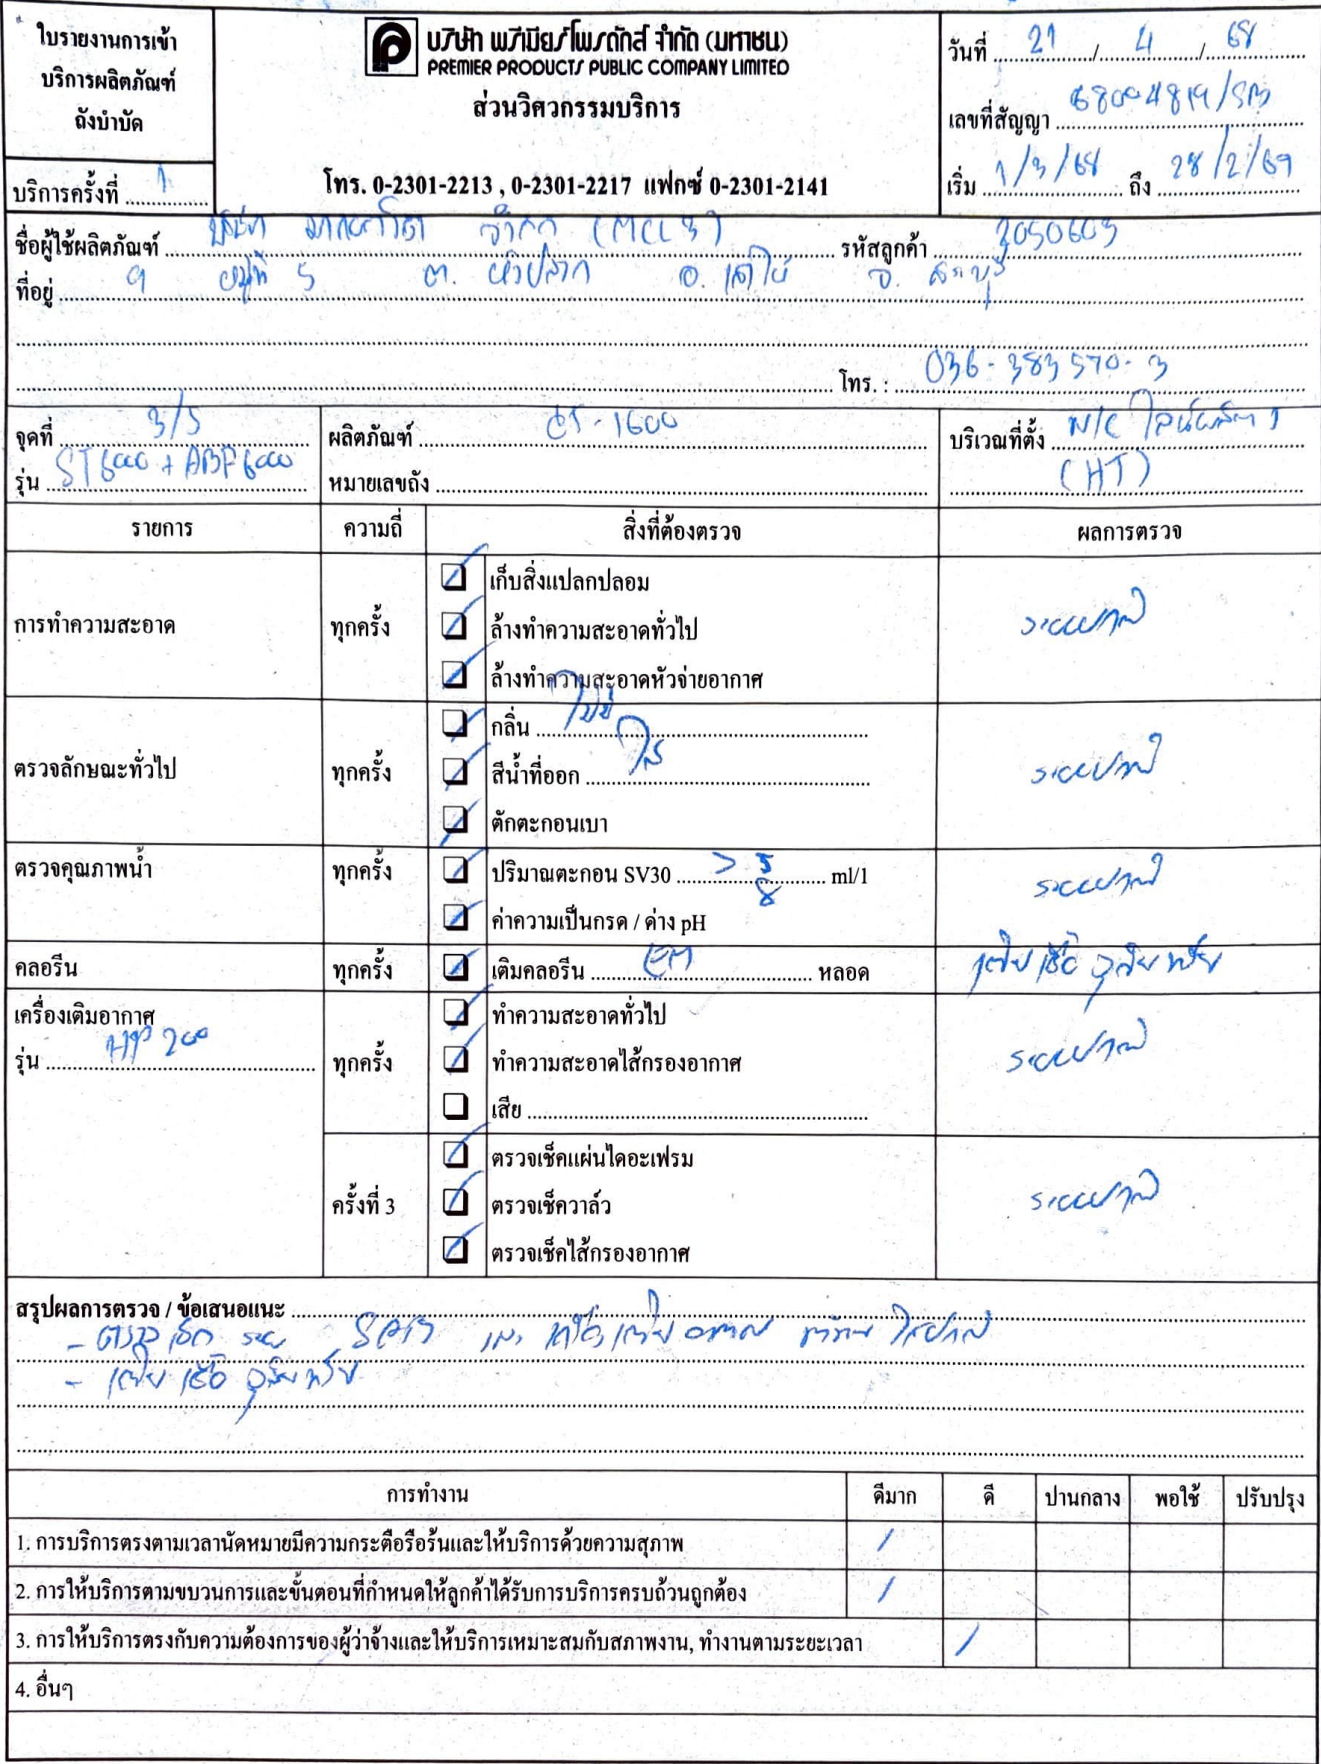 ใบรายงานการเข้า
บริการผลิตภัณฑ์
ถังบำบัด
บริการครั้งที่ 1
บริษัท พรีเมียร์โพรดักส์ จำกัด (มหาชน)
PREMIER PRODUCTS PUBLIC COMPANY LIMITED
ส่วนวิศวกรรมบริการ
โทร. 0-2301-2213 , 0-2301-2217 แฟกซ์ 0-2301-2141
วันที่ 21 / 4 / 68
เลขที่สัญญา
เริ่ม 1/3/68 ถึง 28/2/69
ชื่อผู้ใช้ผลิตภัณฑ์ บริษัท จำกัด รหัสลูกค้า 3050603
ที่อยู่ 9 หมู่ที่ 5 ต. หัวปลวก อ. เสาไห้ จ. สระบุรี
โทร. : 036-383570-3
จุดที่ 3/5
รุ่น ST6000 + ABF6000
ผลิตภัณฑ์ -1600
หมายเลขถัง
บริเวณที่ตั้ง
(HT)
รายการ ความถี่ สิ่งที่ต้องตรวจ ผลการตรวจ
การทำความสะอาด ทุกครั้ง
เก็บสิ่งแปลกปลอม
ล้างทำความสะอาดทั่วไป
ล้างทำความสะอาดหัวจ่ายอากาศ
ระบบปกติ
ตรวจลักษณะทั่วไป ทุกครั้ง
กลิ่น ไม่มี
สีน้ำที่ออก ใส
ตักตะกอนเบา
ระบบปกติ
ตรวจคุณภาพน้ำ ทุกครั้ง
ปริมาณตะกอน SV30 > 5 ml/1
ค่าความเป็นกรด / ด่าง pH 8
ระบบปกติ
คลอรีน ทุกครั้ง เติมคลอรีน EM หลอด เติมเชื้อจุลินทรีย์
เครื่องเติมอากาศ
รุ่น HP 200
ทุกครั้ง
ทำความสะอาดทั่วไป
ทำความสะอาดไส้กรองอากาศ
เสีย
ระบบปกติ
ครั้งที่ 3
ตรวจเช็คแผ่นไดอะเฟรม
ตรวจเช็ควาล์ว
ตรวจเช็คไส้กรองอากาศ
ระบบปกติ
สรุปผลการตรวจ / ข้อเสนอแนะ
- ตรวจเช็ค ระบบ และ เครื่องเติมอากาศ ทำงาน ได้ปกติ
- เติมเชื้อจุลินทรีย์
การทำงาน ดีมาก ดี ปานกลาง พอใช้ ปรับปรุง
1. การบริการตรงตามเวลานัดหมายมีความกระตือรือร้นและให้บริการด้วยความสุภาพ /
2. การให้บริการตามขบวนการและขั้นตอนที่กำหนดให้ลูกค้าได้รับการบริการครบถ้วนถูกต้อง /
3. การให้บริการตรงกับความต้องการของผู้ว่าจ้างและให้บริการเหมาะสมกับสภาพงาน, ทำงานตามระยะเวลา /
4. อื่นๆ